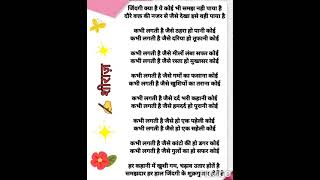 जिंदगी क्या है ये कोई भी समझ नही पाया है
दौरे वक्त की नजर से जैसे देखा इसे वही पाया है
कभी लगती है जैसे ठहरा हो पानी कोई
कभी लगती है जैसे दरिया हो तूफानी कोई
कभी लगती है जैसे मीलों लंबा सफर कोई
कभी लगती है जैसे रस्ता हो मुख्तसर कोई
कभी लगती है जैसे गमों का फसाना कोई
कभी लगती है जैसे खुशियों का तराना कोई
कभी लगती है जैसे दर्द भरी कहानी कोई
कभी लगती है जैसे हमदर्द हो पुरानी कोई
कभी लगती है जैसे हो एक पहेली कोई
कभी लगती है जैसे हो एक सहेली कोई
कभी लगती है जैसे कांटो की हो डगर कोई
कभी लगती है जैसे गुलों का हो सफर कोई
हर कहानी में खुशी गम, चढ़ाव उतार होतें है
समझदार हर हाल जिंदगी के शुक्रगुजार होतें है
शीराज़